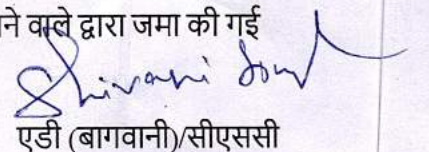 वाले द्वारा जमा की गई
Shivani
एडी (बागवानी)/सीएससी